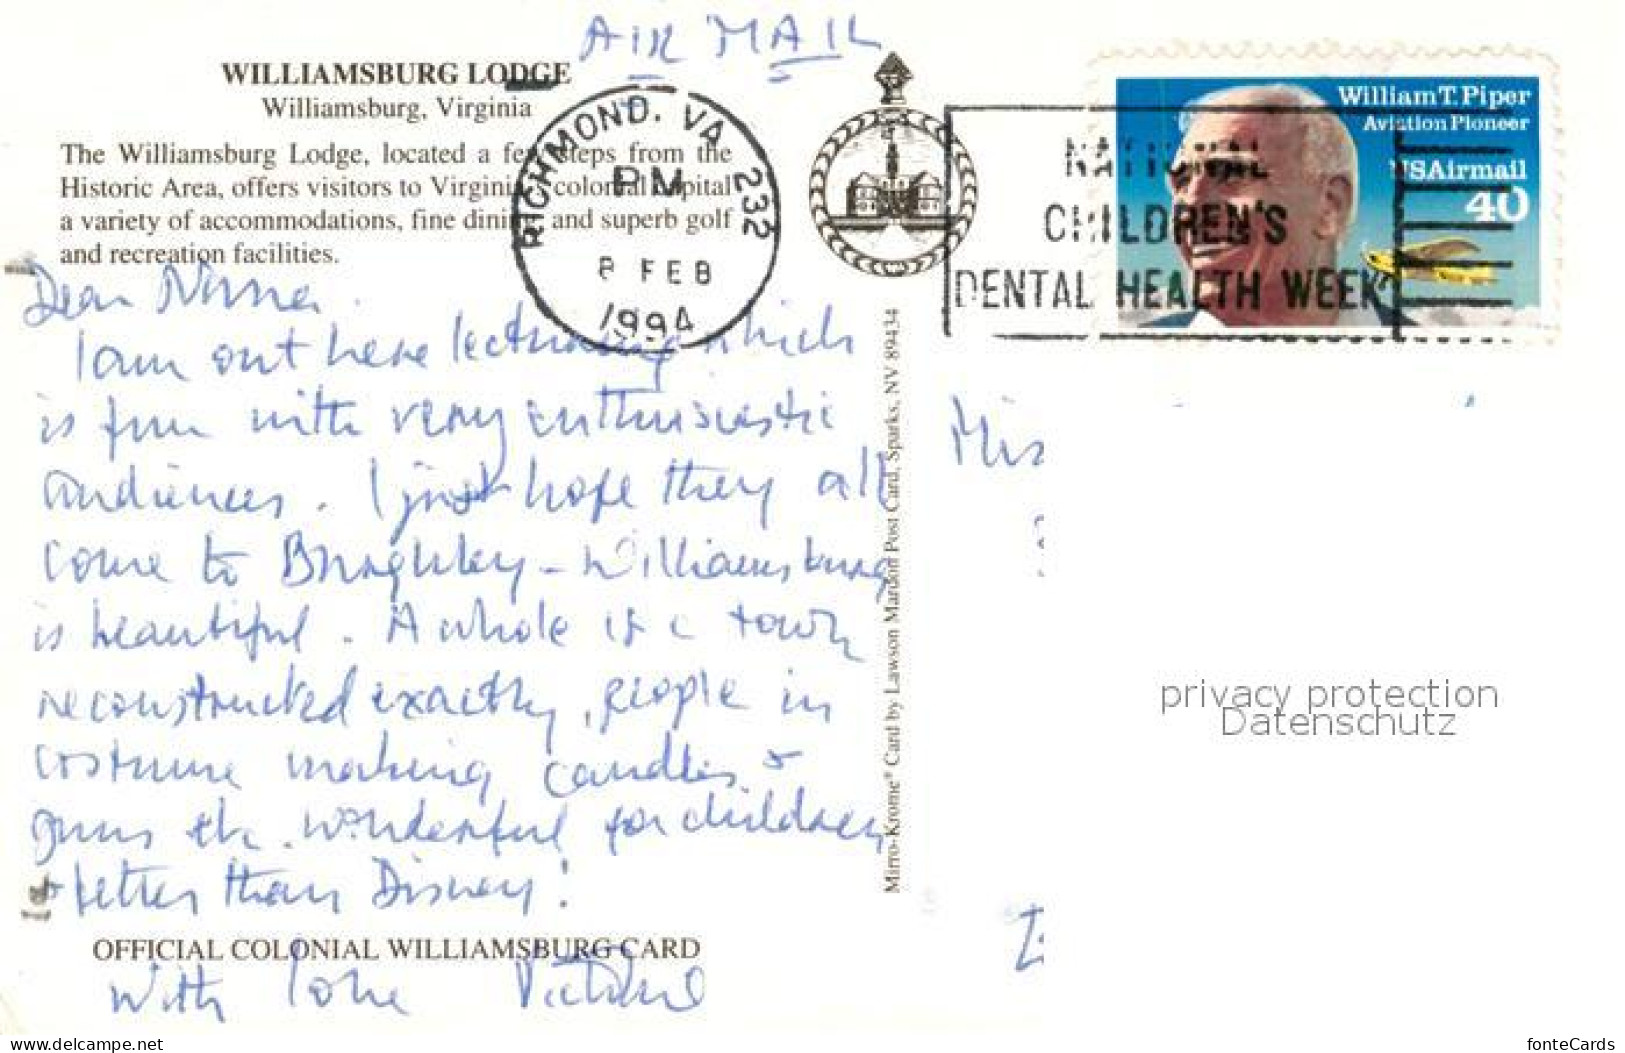 AIR MAIL
WILLIAMSBURG LODGE
Williamsburg, Virginia
The Williamsburg Lodge, located a few steps from the
Historic Area, offers visitors to Virginia's colonial capital
a variety of accommodations, fine dining and superb golf
and recreation facilities.
RICHMOND, VA 232
PM
8 FEB
1994
NATIONAL
CHILDREN'S
DENTAL HEALTH WEEK
William T. Piper
Aviation Pioneer
USAirmail
40
Dear
I am out here lecturing which
is fun with very enthusiastic
audiences. I just hope they all
come to - Williamsburg
is beautiful. A whole town
reconstructed exactly, people in
costume making candles &
guns etc. wonderful for children
& better than Disney!
OFFICIAL COLONIAL WILLIAMSBURG CARD
With love
Mirro-Krome® Card by Lawson Mardon Post Card, Sparks, NV 89434
Miss
privacy protection
Datenschutz
www.delcampe.net
fonteCards